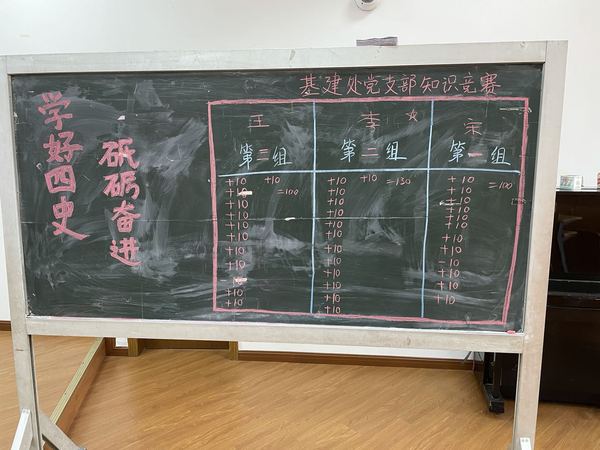 学好四史
砥砺奋进
基建处党支部知识竞赛
王
第三组
+10 +10
=100
+10
+10
+10
+10
+10
+10
+10
+10
李☆
第二组
+10 +10 =130
+10
+10
+10
+10
+10
+10
+10
+10
+10
+10
+10
宋
第一组
+10 =100
+10
+10
+10
+10
+10
+10
-10
+10
+10
+10